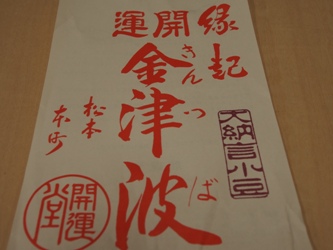 縁起
開運
金津波
きんつば
大納言小豆
松本
本町
開運堂